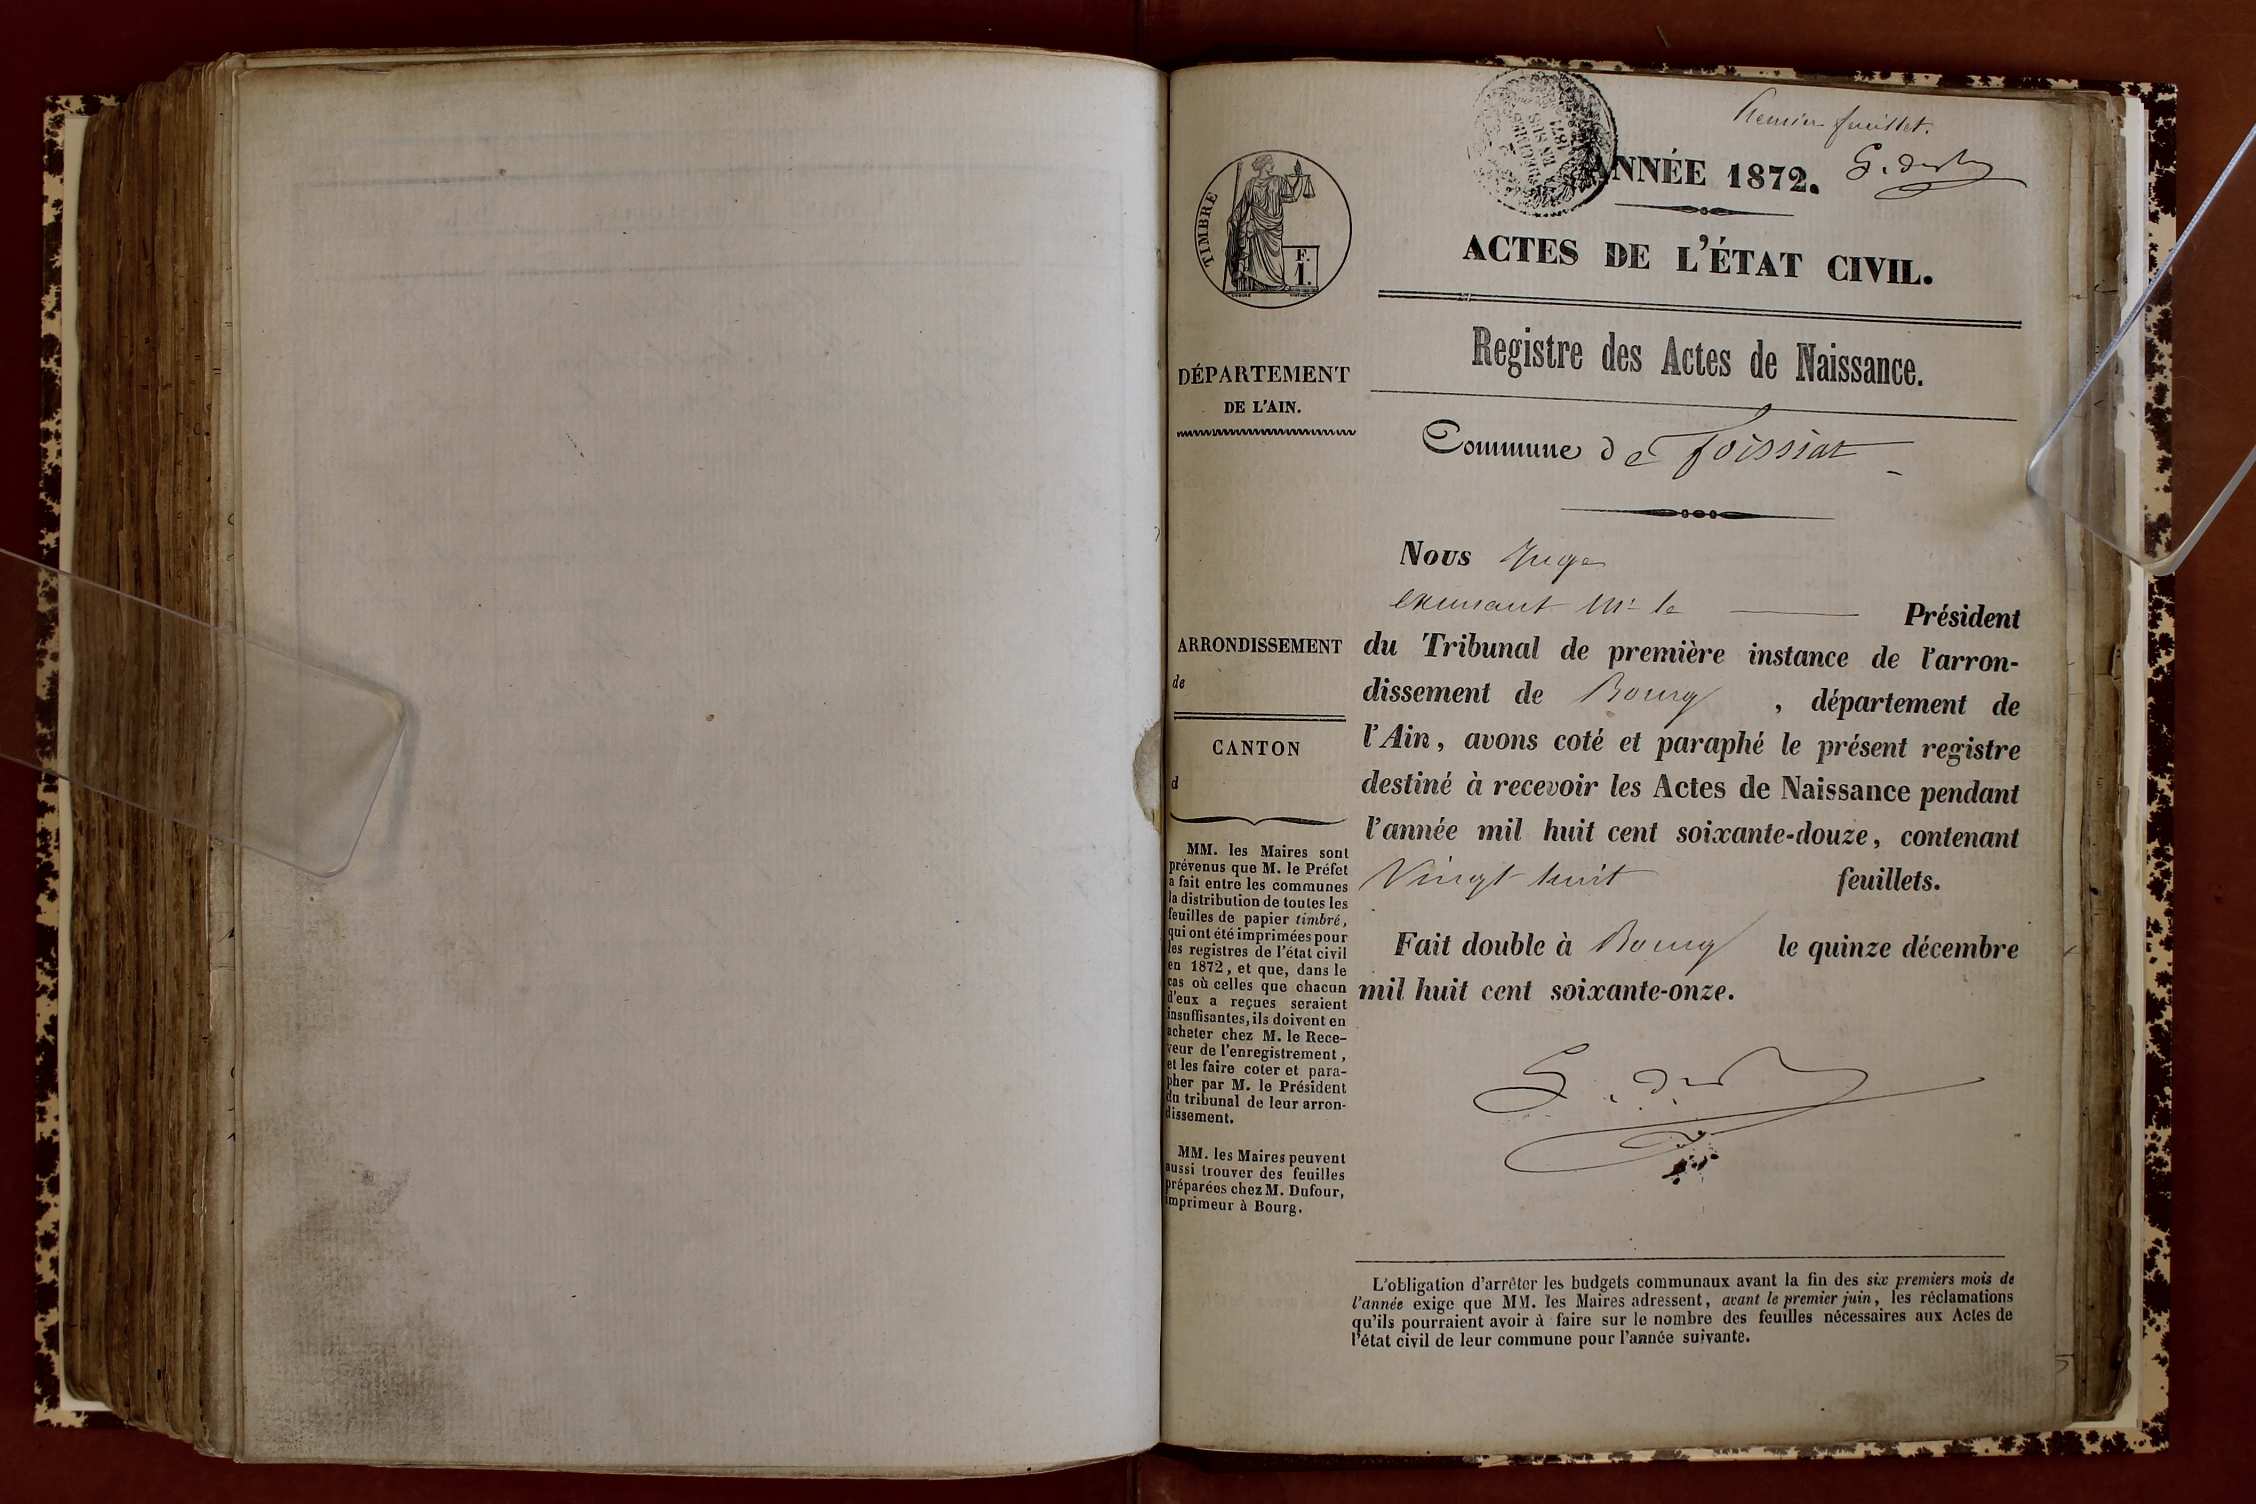 Premier feuillet.
ANNÉE 1872.
ACTES DE L'ÉTAT CIVIL.
Registre des Actes de Naissance.
Commune de Foissiat
TIMBRE
F.
1.
DÉPARTEMENT
DE L'AIN.
ARRONDISSEMENT
de
CANTON
d
MM. les Maires sont
prévenus que M. le Préfet
a fait entre les communes
la distribution de toutes les
feuilles de papier timbré,
qui ont été imprimées pour
les registres de l'état civil
en 1872, et que, dans le
cas où celles que chacun
d'eux a reçues seraient
insuffisantes, ils doivent en
acheter chez M. le Rece-
veur de l'enregistrement,
et les faire coter et para-
pher par M. le Président
du tribunal de leur arron-
dissement.
MM. les Maires peuvent
aussi trouver des feuilles
préparées chez M. Dufour,
imprimeur à Bourg.
Nous Juge
Mr le Président
du Tribunal de première instance de l'arron-
dissement de Bourg, département de
l'Ain, avons coté et paraphé le présent registre
destiné à recevoir les Actes de Naissance pendant
l'année mil huit cent soixante-douze, contenant
Vingt huit feuillets.
Fait double à Bourg le quinze décembre
mil huit cent soixante-onze.
L'obligation d'arrêter les budgets communaux avant la fin des six premiers mois de
l'année exige que MM. les Maires adressent, avant le premier juin, les réclamations
qu'ils pourraient avoir à faire sur le nombre des feuilles nécessaires aux Actes de
l'état civil de leur commune pour l'année suivante.